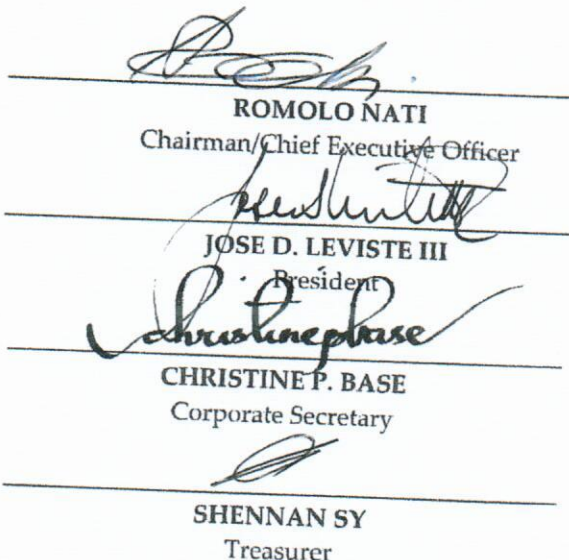 ROMOLO NATI
Chairman/Chief Executive Officer
JOSE D. LEVISTE III
President
christinepbase
CHRISTINE P. BASE
Corporate Secretary
SHENNAN SY
Treasurer